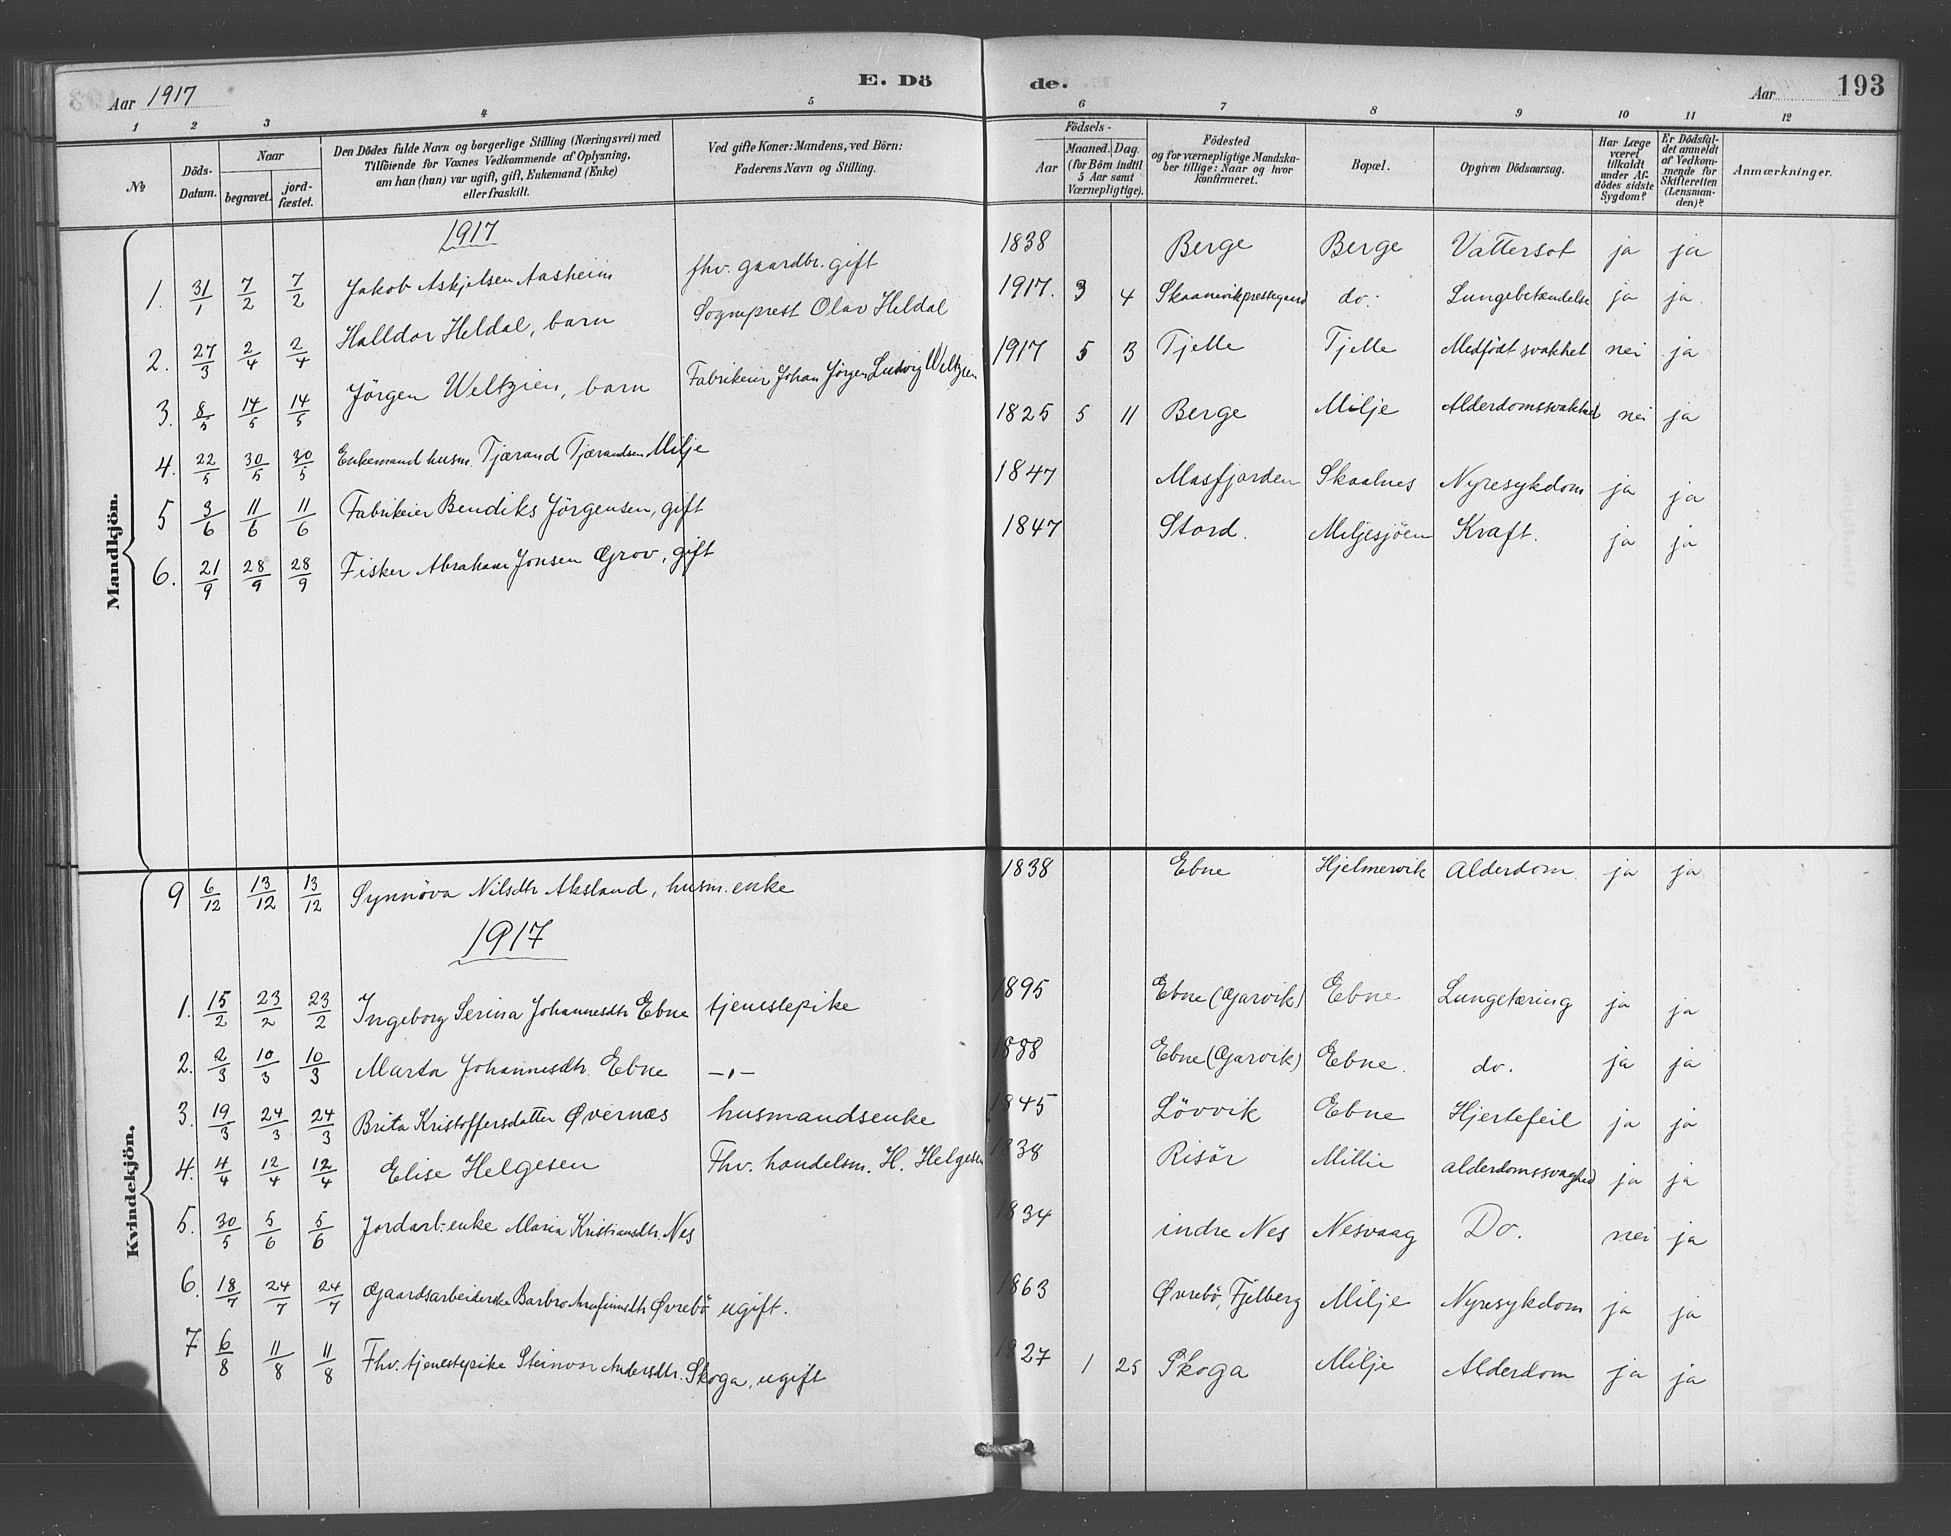 Aar 1917
E. Döde.
Aar
193
1 2 3 4 5 6 7 8 9 10 11 12
№
Döds-Datum.
Naar begravet. jordfæstet.
Den Dödes fulde Navn og borgerlige Stilling (Næringsvei) med Tilföiende for Voxnes Vedkommende af Oplysning, om han (hun) var ugift, gift, Enkemand (Enke) eller fraskilt.
Ved gifte Koner: Mandens, ved Börn: Faderens Navn og Stilling.
Födsels- Aar Maaned. Dag. (for Börn indtil 5 Aar samt Værnepligtige).
Födested og for værnepligtige Mandskaber tillige: Naar og hvor konfirmeret.
Bopæl.
Opgiven Dödsaarsag.
Har Læge været tilkaldt under Afdödes sidste Sygdom?
Er Dödsfaldet anmeldt af Vedkommende for Skifteretten (Lensmanden)?
Anmærkninger.
Mandkjön.
1917
1. 31/1 7/2 7/2 Jakob Askjelsen Aasheim fhv. gaardbr. gift 1838 Berge Berge Vattersot ja ja
2. 27/3 2/4 2/4 Halldor Heldal, barn Sogneprest Olav Heldal 1917. 3 4 Skaanevikprestegaard do. Lungebetændelse ja ja.
3. 8/5 14/5 14/5 Jörgen Weltzien, barn Fabrikeier Johan Jörgen Ludvig Weltzien 1917 5 3 Tjelle Tjelle Medfödt svakhet nei ja
4. 22/5 30/5 30/5 Enkemand husm. Tjærand Tjærandsen Milje 1825 5 11 Berge Milje Alderdomssvakhed nei ja
5 3/6 11/6 11/6 Fabrikeier Bendiks Jörgensen, gift 1847 Masfjorden Skaalnes Nyresykdom ja ja
6. 21/9 28/9 28/9 Fisker Abraham Jonsen Grov, gift 1847 Stord. Miljesjöen Kraft. ja ja
Kvindekjön.
9 6/12 13/12 13/12 Synnöva Nilsdtr Aksland, husm. enke 1838 Ebne Hjelmervik Alderdom. ja ja
1917
1. 15/2 23/2 23/2 Ingeborg Serina Johannesdtr Ebne tjenestepike 1895 Ebne (Gjarvik) Ebne Lungetæring ja ja
2. 2/3 10/3 10/3 Marta Johannesdtr. Ebne —„— 1888 Ebne (Gjarvik) Ebne. do. ja ja
3. 19/3 24/3 24/3 Brita Kristoffersdatter Øvernæs husmandsenke 1845 Lövvik Ebne Hjertefeil ja ja
4. 4/4 12/4 12/4 Elise Helgesen Fhv. handelsm. H. Helgesen 1838 Risör Millie alderdomssvaghed ja ja
5. 30/5 5/6 5/6 Jordarb. enke Maria Kristiansdtr. Nes 1834 indre Nes Nesvaag Do. nei ja
6. 18/7 24/7 24/7 Gaardsarbeiderske Barbro Øvrebö ugift. 1863 Øvrebö, Fjelberg Milje Nyresykdom ja ja
7 6/8 11/8 11/8 Fhv. tjenestepike Steinvor Andersdtr. Skoga, ugift 1827 1 25 Skoga Milje Alderdom ja ja